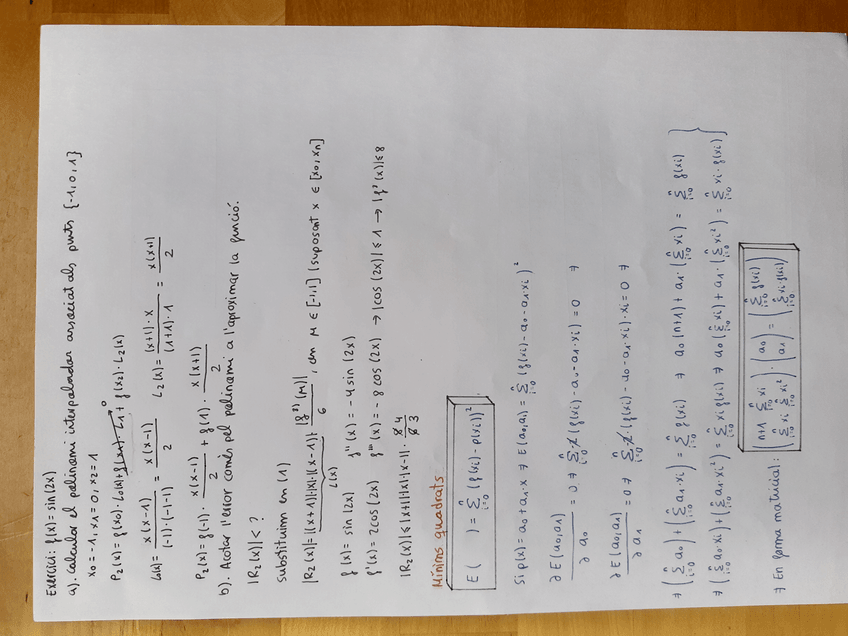 Exercici: f(x) = sin(2x)
a). Calcular el polinomi interpolador associat als punts {-1, 0, 1}
x0 = -1, x1 = 0, x2 = 1
P2(x) = f(x0)·L0(x) + f(x1)·L1 + f(x2)·L2(x)
0
L0(x) = x(x-1) / (-1)·(-1-1) = x(x-1) / 2    L2(x) = (x+1)·x / (1+1)·1 = x(x+1) / 2
P2(x) = f(-1)· x(x-1) / 2 + f(1)· x(x+1) / 2
b). Acotar l'error comès pel polinomi a l'aproximar la funció.
|R2(x)| < ?
Substituïm en (1)
|R2(x)| = |(x+1)|·|x|·|(x-1)| · |f³⁾(M)| / 6, on M ∈ [-1,1] (suposant x ∈ [x0, xn]
L(x)
f(x) = sin(2x)    f''(x) = -4 sin(2x)
f'(x) = 2cos(2x)    f'''(x) = -8cos(2x) → |cos(2x)| ≤ 1 → |f³(x)| ≤ 8
|R2(x)| ≤ |x+1|·|x|·|x-1| · 8 4 / 6 3
Mínims quadrats
E(    ) = n∑i=0 (f(xi) - p(xi))²
Si p(x) = a0 + a1·x ⇒ E(a0,a1) = n∑i=0 (f(xi) - a0 - a1·xi)²
∂E(a0,a1) / ∂a0 = 0 ⇒ n∑i=0 -2·(f(xi) - a0 - a1·xi) = 0 ⇒
∂E(a0,a1) / ∂a1 = 0 ⇒ n∑i=0 -2·(f(xi) - a0 - a1·xi)·xi = 0 ⇒
⇒ (n∑i=0 a0) + (n∑i=0 a1·xi) = n∑i=0 f(xi) ⇒ a0(n+1) + a1·(n∑i=0 xi) = n∑i=0 f(xi) }
⇒ (n∑i=0 a0·xi) + (n∑i=0 a1·xi²) = n∑i=0 xi f(xi) ⇒ a0(n∑i=0 xi) + a1·(n∑i=0 xi²) = n∑i=0 xi·f(xi)
⇒ En forma matricial: (n+1 n∑i=0 xi / n∑i=0 xi n∑i=0 xi²) · (a0 / a1) = (n∑i=0 f(xi) / n∑i=0 xi f(xi))